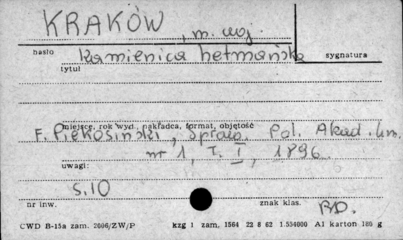 KRAKÓW, m. woj.
hasło kamienica hetmańska sygnatura
tytuł
miejsce, rok wyd., nakładca, format, objętość
F. Piekosiński, Spraw. Pol. Akad. Um.
nr 1, T. I, 1896
uwagi:
S.10
nr inw. znak klas. BD.
CWD B-15a zam. 2006/ZW/P kzg 1 zam. 1564 22 8 62 1.554000 A1 karton 180 g